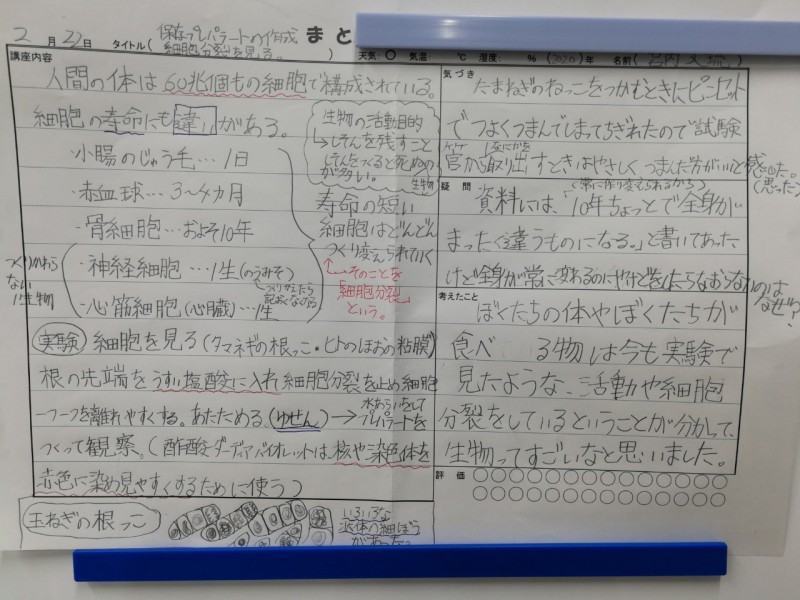 2月22日 タイトル(保存プレパラートの作成 細胞分裂を見る。) まと
天気 〇 気温: ℃ 湿度: % (2020)年 名前(宮内
講座内容
人間の体は60兆個もの細胞で構成されている。
細胞の寿命にも違いがある。
・小腸のじゅう毛…1日
・赤血球…3~4カ月
・骨細胞…およそ10年
・神経細胞…1生(のうみそ)
・心筋細胞(心臓)…1生
つくりかわら
ない
1生物
生物の活動目的
→しそんを残すこと
しそんをつくると死ぬもの
が多い。
生物
寿命の短い
細胞はどんどん
つくり変えられていく
そのことを
細胞分裂
という。
実験 細胞を見る(タマネギの根っこ・ヒトのほおの粘膜)
根の先端をうすい塩酸に入れ細胞分裂を止め細胞
一つ一つを離れやすくする。あたためる、(ゆせん)→水あらいをして プレパラートを
つくって観察。(酢酸ダーディアバイオレットは、核や染色体を
赤色に染め見やすくするために使う)
玉ねぎの根っこ
いろいろな
があった。
気づき
たまねぎのねっこをつかむときにピンセット
でつよくつまんでしまってちぎれたので試験
管から取り出すときはやさしくつまんだ方がいいと感じた。
(思った)
疑問
(常に作り変えられるから)
資料には、「10年ちょっとで全身が
まったく違うものになる。」と書いてあった
けど全身が常に変わるのにやけどをしたらなおらないのは
なぜ?
考えたこと
ぼくたちの体やぼくたちが
食べ る物は今も実験で
見たような、活動や細胞
分裂をしているということが分かって、
生物ってすごいなと思いました。
評価